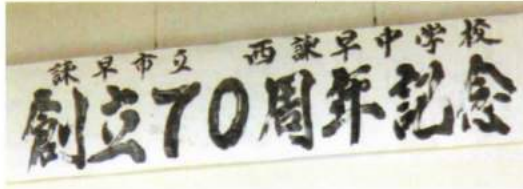 諫早市立 西諫早中学校
創立70周年記念